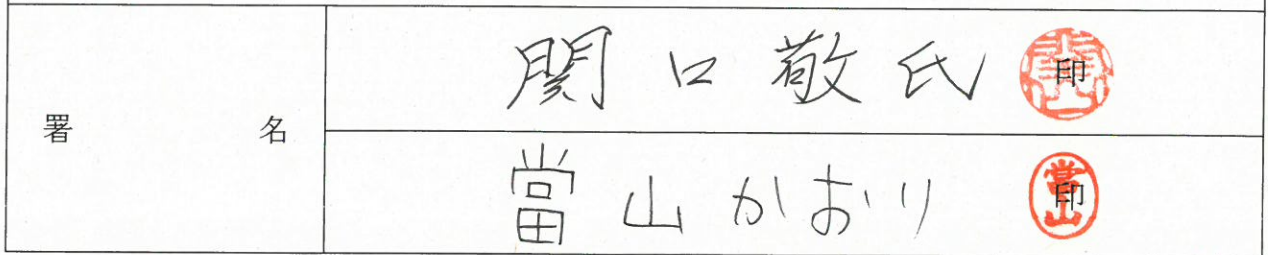 署名
関口敬氏 印
當山かおり 印
當山